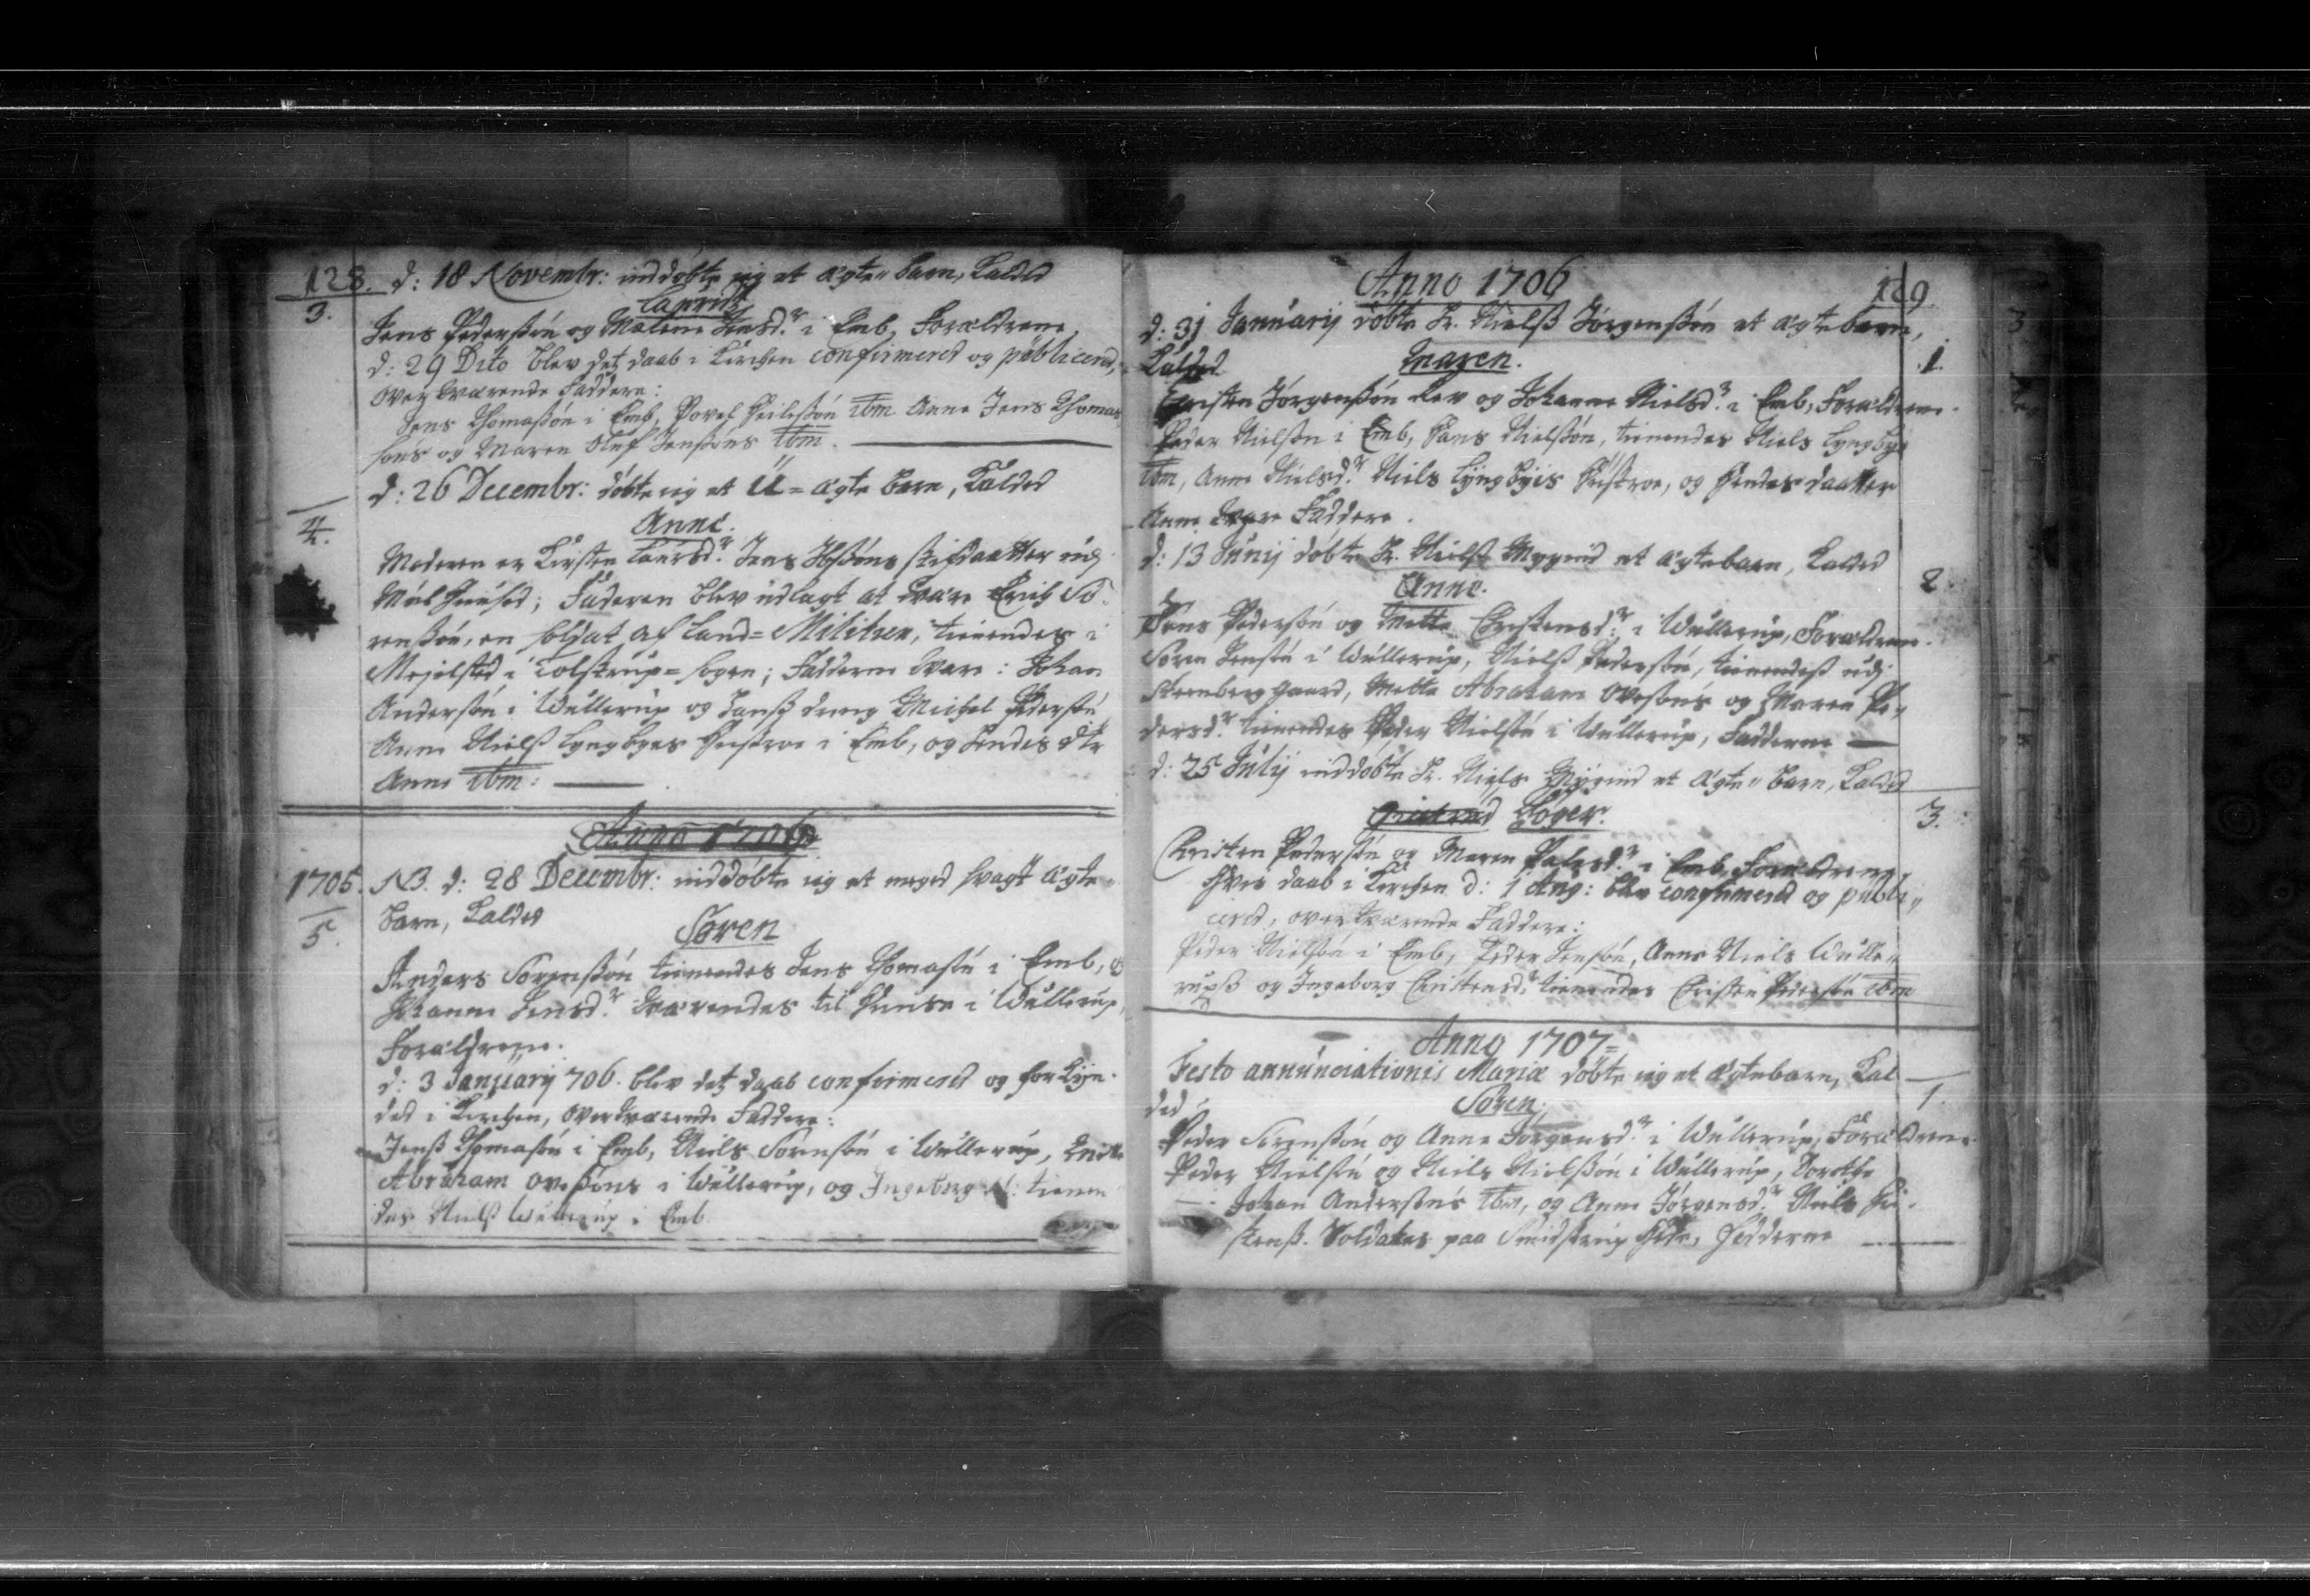 128. d: 18 Novembr: inddøbte ieg et ægte barn, kalded
3. Laurids
Jens Pedersøn og Malene Jensd.r i Emb, Forældrene,
d: 29 Dito blev detz daab i Kirchen confirmered og publicered,
overværende Faddere:
Jens Thomasøn i Emb, Povel ibm Anne Jens Thoma
søns og Maren Oluf Jensøns ibm.
d: 26 Decembr: døbte ieg et U=ægte barn, kalded
4. Anne.
Moderen er Kirsten Laursd.r Jens Ibsøns stifdaatter udj
; Faderen blev udlagt at være Erich Sø-
rensøn, en soldat af Land=Militzen, tienendes i
Mejelsted i Tolstrup=sogen; Fadderne vare: Johan
Andersøn i Wullerup og hanß dreng Michel Pedersøn
Anne Nielß Lyngbyes hustroe i Emb, og hendes dtr
Anne ibm:
Anno 1706
1705. NB. d: 28 Decembr: inddøbte ieg et meged svagt ægte
5. barn, kalded
Søren
Anders Sørensøn tienendes Jens Thomasøn i Emb, og
Johanne Jensd.r værendes til huuse i Wullerup,
Forældrene.
d: 3 January 706. blev detz daab confirmered og forkyn-
ded i Kirchen, overværende Faddere:
Jenß Thomasøn i Emb, Niels Sørensøn i Wullerup,
Abraham Ovesøns i Wullerup, og Ingeborg N: tienen
des Nielß Wullerup i Emb
Anno 1706
129.
d: 31 Januarij døbte Hr. Nielß Jørgensøn et ægte barn,
kalded Maren. 1.
Christen Jørgensøn og Johanne Nielsd.r i Emb, Forældrene.
Peder Nielsøn i Emb, Hans Nielsøn, tienendes Niels Lyngbye
ibm, Anne Nielsd.r Niels Lyngbyes Hustroe, og hendes daatter
Anne vare Faddere.
d: 13 Junij døbte Hr. Nielß Mygind et ægte barn, kaldet
Anne. 2
Jens Pedersøn og Mette Christensd.r i Wullerup, Forældrene.
Søren Jensøn i Wullerup, Nielß Pedersøn, tienendeß udj
Steenberggaard, Mette Abraham Ovesøns og Maren Pe,,
dersd.r tienendes Peder Nielsøn i Wullerup, Fadderne
d: 25 Julij inddøbte Hr. Niels Mygind et ægte,, barn, kalded
3.
Christen Pedersøn og Maren i Emb, Forældrene
hvis daab i Kirchen d: 1 Aug: blev confirmered og publi,,
cered, overværende Faddere:
Peder Nielsøn i Emb, Peder Jensøn, Anne Niels Wulle,,
rupß og Ingeborg Christensd.r tienendes Christen Pedersøn ibm
Anno 1707=
Festo annunciationis Mariæ døbte ieg et ægte barn, kal
ded Søren, 1.
Peder Sørensøn og Anne Jørgensd.r i Wullerup, Forældrene.
Peder Nielsøn og Niels Nielsøn i Wullerup, Dorothe
Johan Andersøns ibm, og Anne Jørgensd.r Niels
Soldates paa Smidstrup hede, Fadderne